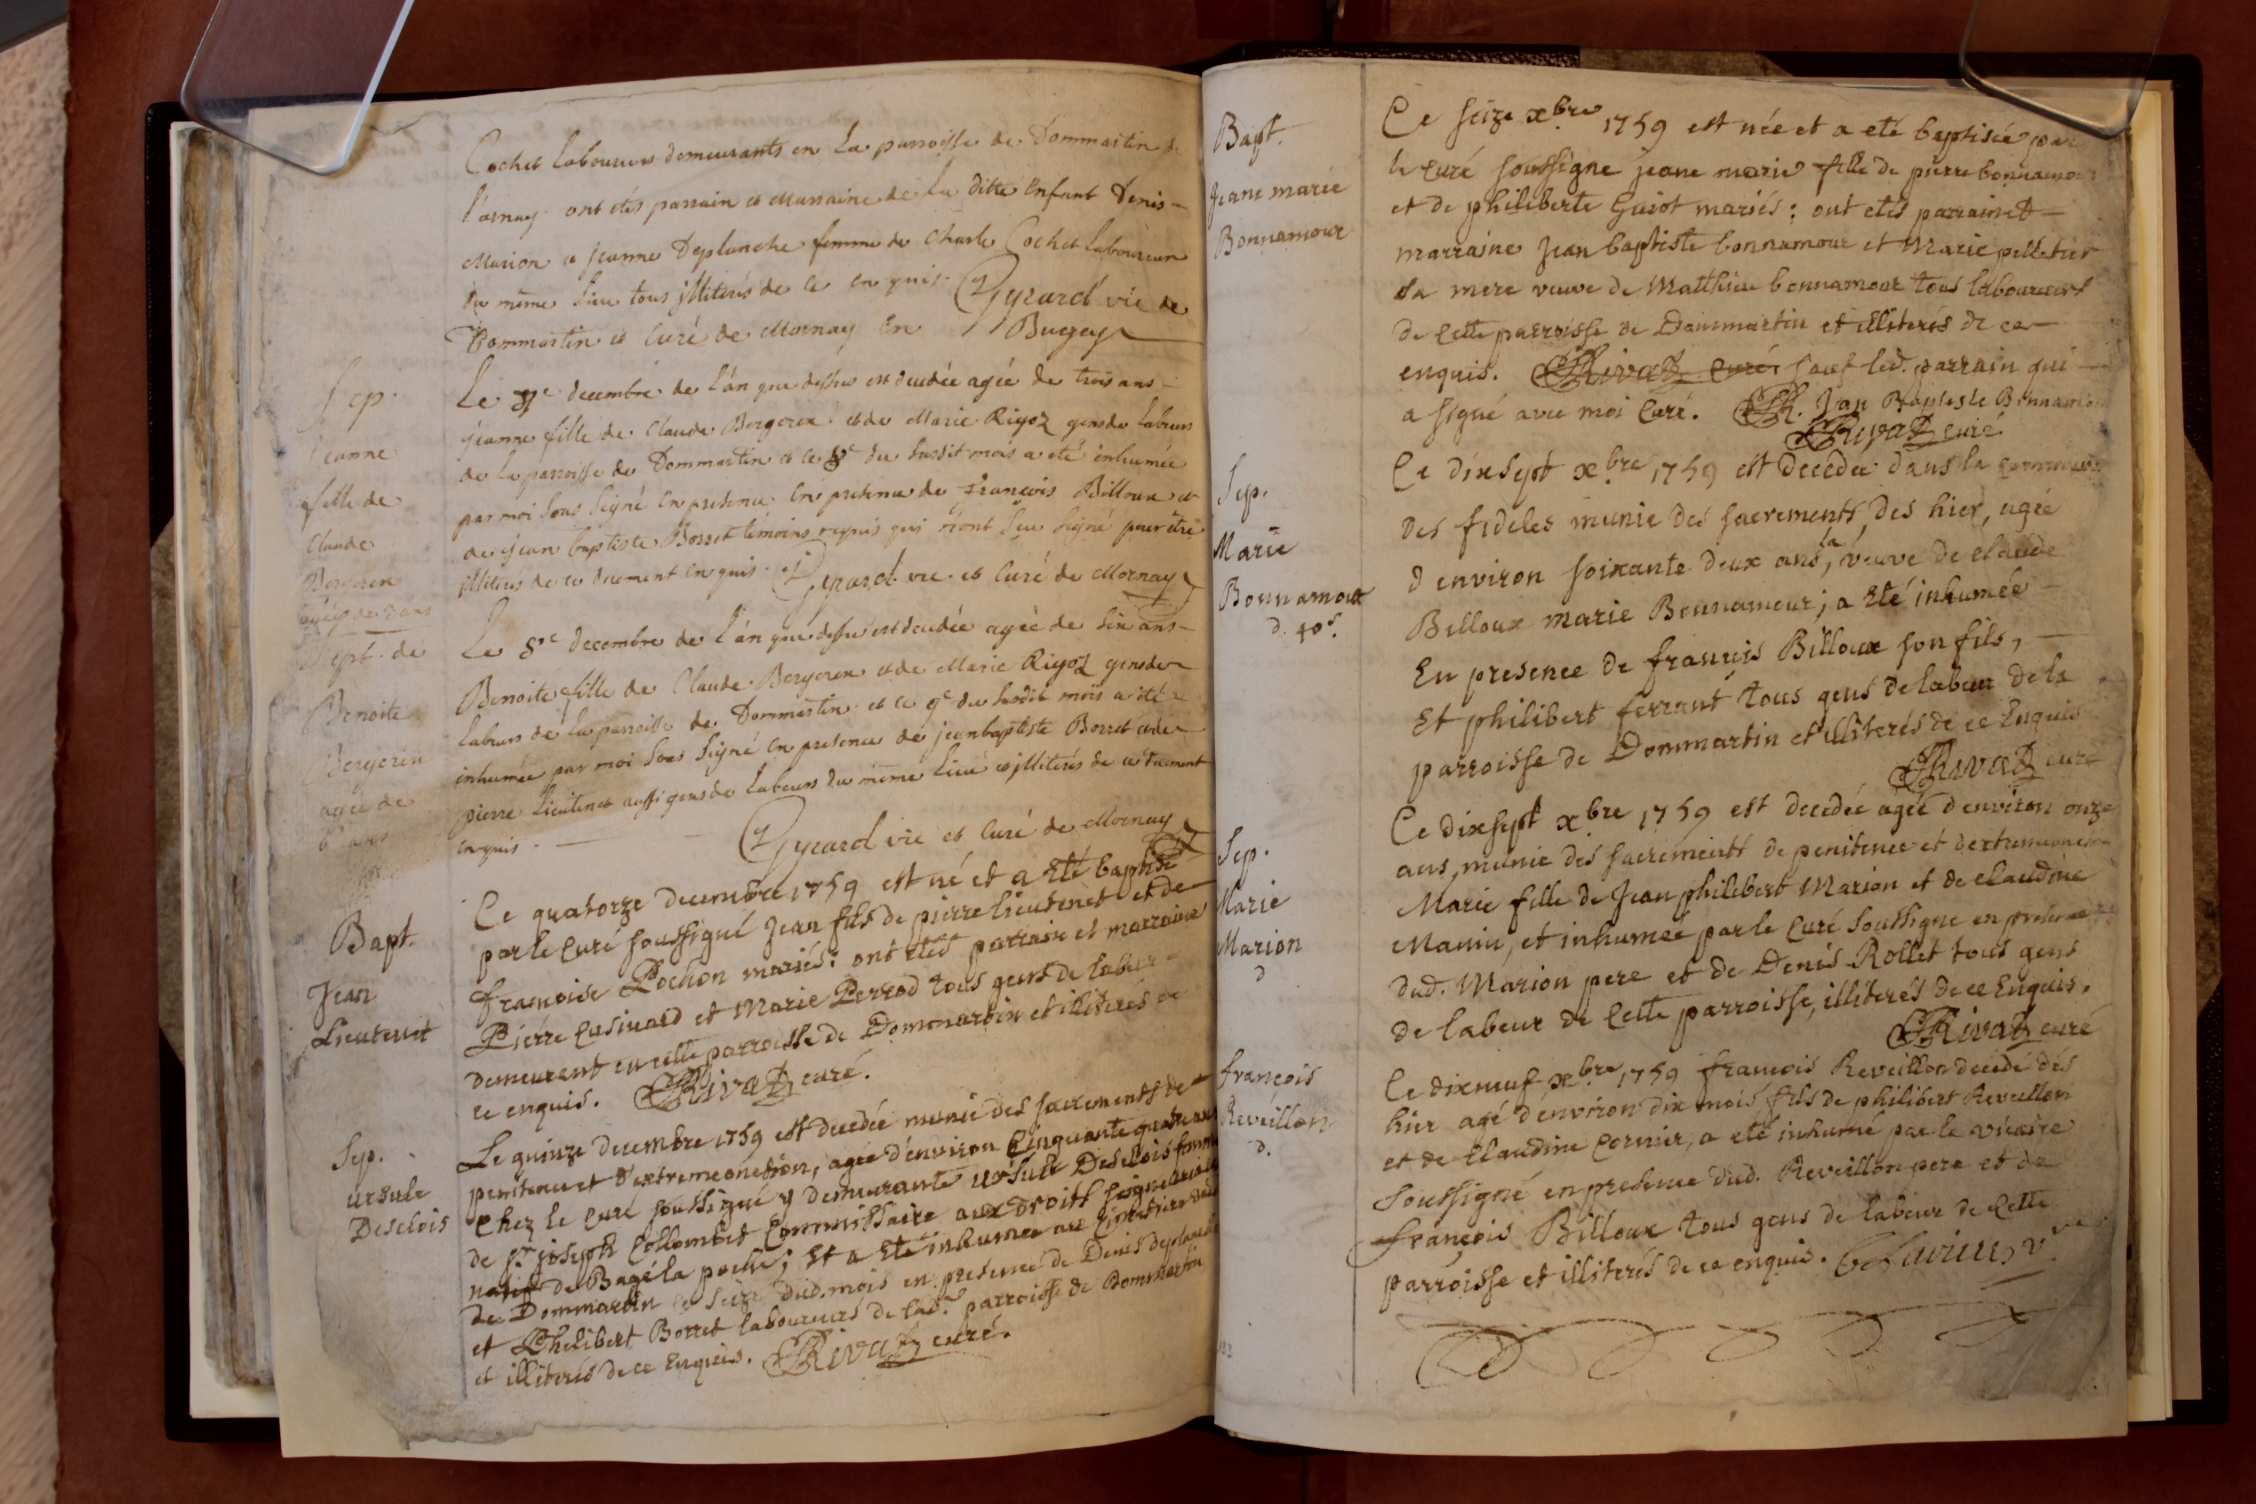 Cochet laboureurs demeurants en La parroisse de Dommartin de
l'arnay ont etés parrain et Marraine de La ditte Enfant Denis
Marion et jeanne Deplanche femme de Charle Cochet laboureur
du même Lieu tous jlliterés de ce enquis. Gyrard vic de
Dommartin et Curé de Mornay En Bugey
Sep.
jeanne
fille de
Claude
Bergeron
agée de 3 ans
Le decembre de l'an que dessus est decedée agée de trois ans
jeanne fille de Claude Bergeron et de Marie Rigoz gens de labeurs
de la parroisse de Dommartin et ce 8e du susdit mois a eté inhumée
par moi sous signé En presence En presence de françois Billoux et
de jean baptiste Borret témoins requis qui n'ont sçu signé pour être
jlliterés de ce duement enquis. Gyrard vic et Curé de Mornay
Sept. de
Benoite
Bergeron
agée de
6 ans
Le 8e decembre de l'an que dessus est decedée agée de six ans
Benoite fille de Claude Bergeron et de Marie Rigoz gens de
labeurs de la parroisse de Dommartin et ce 9e du susdit mois a eté
inhumée par moi sous signé En presence de jean baptiste Borret et de
pierre Lieutenet aussi gens de Labeurs du même Lieu et jlliterés de ce duement
enquis. Gyrard vic et Curé de Mornay
Bapt.
Jean
Lieutenet
Ce quatorze decembre 1759 est né et a Eté baptisé
par le Curé soussigné Jean fils de pierre lieutenet et de
françoise Pochon mariés: ont etés parrain et marraine
Pierre Cusinard et Marie Perrod tous gens de labeur
demeurent en cette parroisse de Dommartin et illiterés de
ce enquis. Rivat curé.
Sep.
ursule
Desclois
Le quinze decembre 1759 est decedée munie des sacrements de
penitence et d'extremeonction, agée d'environ Cinquante quatre ans
Chez le curé soussigné y demeurante ursule Desclois femme
de sr. joseph Collombet Commissaire aux droits seigneuriaux
natif de Bagé la poche; Et a Eté inhumée au Cimetiere dud
de Dommartin le seize dud. mois en presence de Denis deplanche
et Philibert Borret laboureurs de lad. parroisse de Dommartin
et illiterés de ce Enquis. Rivat curé.
Bapt.
Jeane marie
Bonnamour
Ce seize xbre 1759 est née et a eté baptisée par
le Curé soussigné jeane marie fille de pierre bonnamour
et de philiberte Guiot mariés: ont etés parrain et
marraine Jean baptiste bonnamour et Marie pelletier
sa mere veuve de Matthieu bonnamour tous laboureurs
de Cette parroisse de Dammartin et illiterés de ce
enquis. Rivat curé sauf led. parrain qui
a signé avec moi Curé. Jan Baptiste Bonnamour
Rivat curé
Sep.
Marie
Bonnamour
d. 40s.
Ce dix sept xbre 1759 est decedée dans la communion
des fideles munie des sacrements, des hier, agée
d environ soixante deux ans, la veuve de claude
Billoux marie Bonnamour; a Eté inhumée
En presence de françois Billoux son fils,
Et philibert ferrant tous gens de labeur de la
parroisse de Dommartin et illiterés de ce Enquis
Rivat curé
Sep.
Marie
Marion
d
Ce dix sept xbre 1759 est decedée agée d environ onze
ans, munie des sacrements de penitence et dextremeonction
Marie fille de Jean philibert Marion et de claudine
Manin, et inhumée par le Curé soussigné en presence
dud. Marion pere et de Denis Rollet tous gens
de labeur de Cette parroisse, illiterés de ce Enquis.
Rivat curé
françois
Reveillon
d.
Ce dixneuf xbre 1759 françois Reveillon decedé dés
hier agé d'environ dix mois, fils de philibert Reveillon
et de Claudine Cornier, a eté inhumé par le vicaire
soussigné en presence dud. Reveillon pere et de
françois Billoux tous gens de labeur de Cette
parroisse et illiterés de ce enquis.